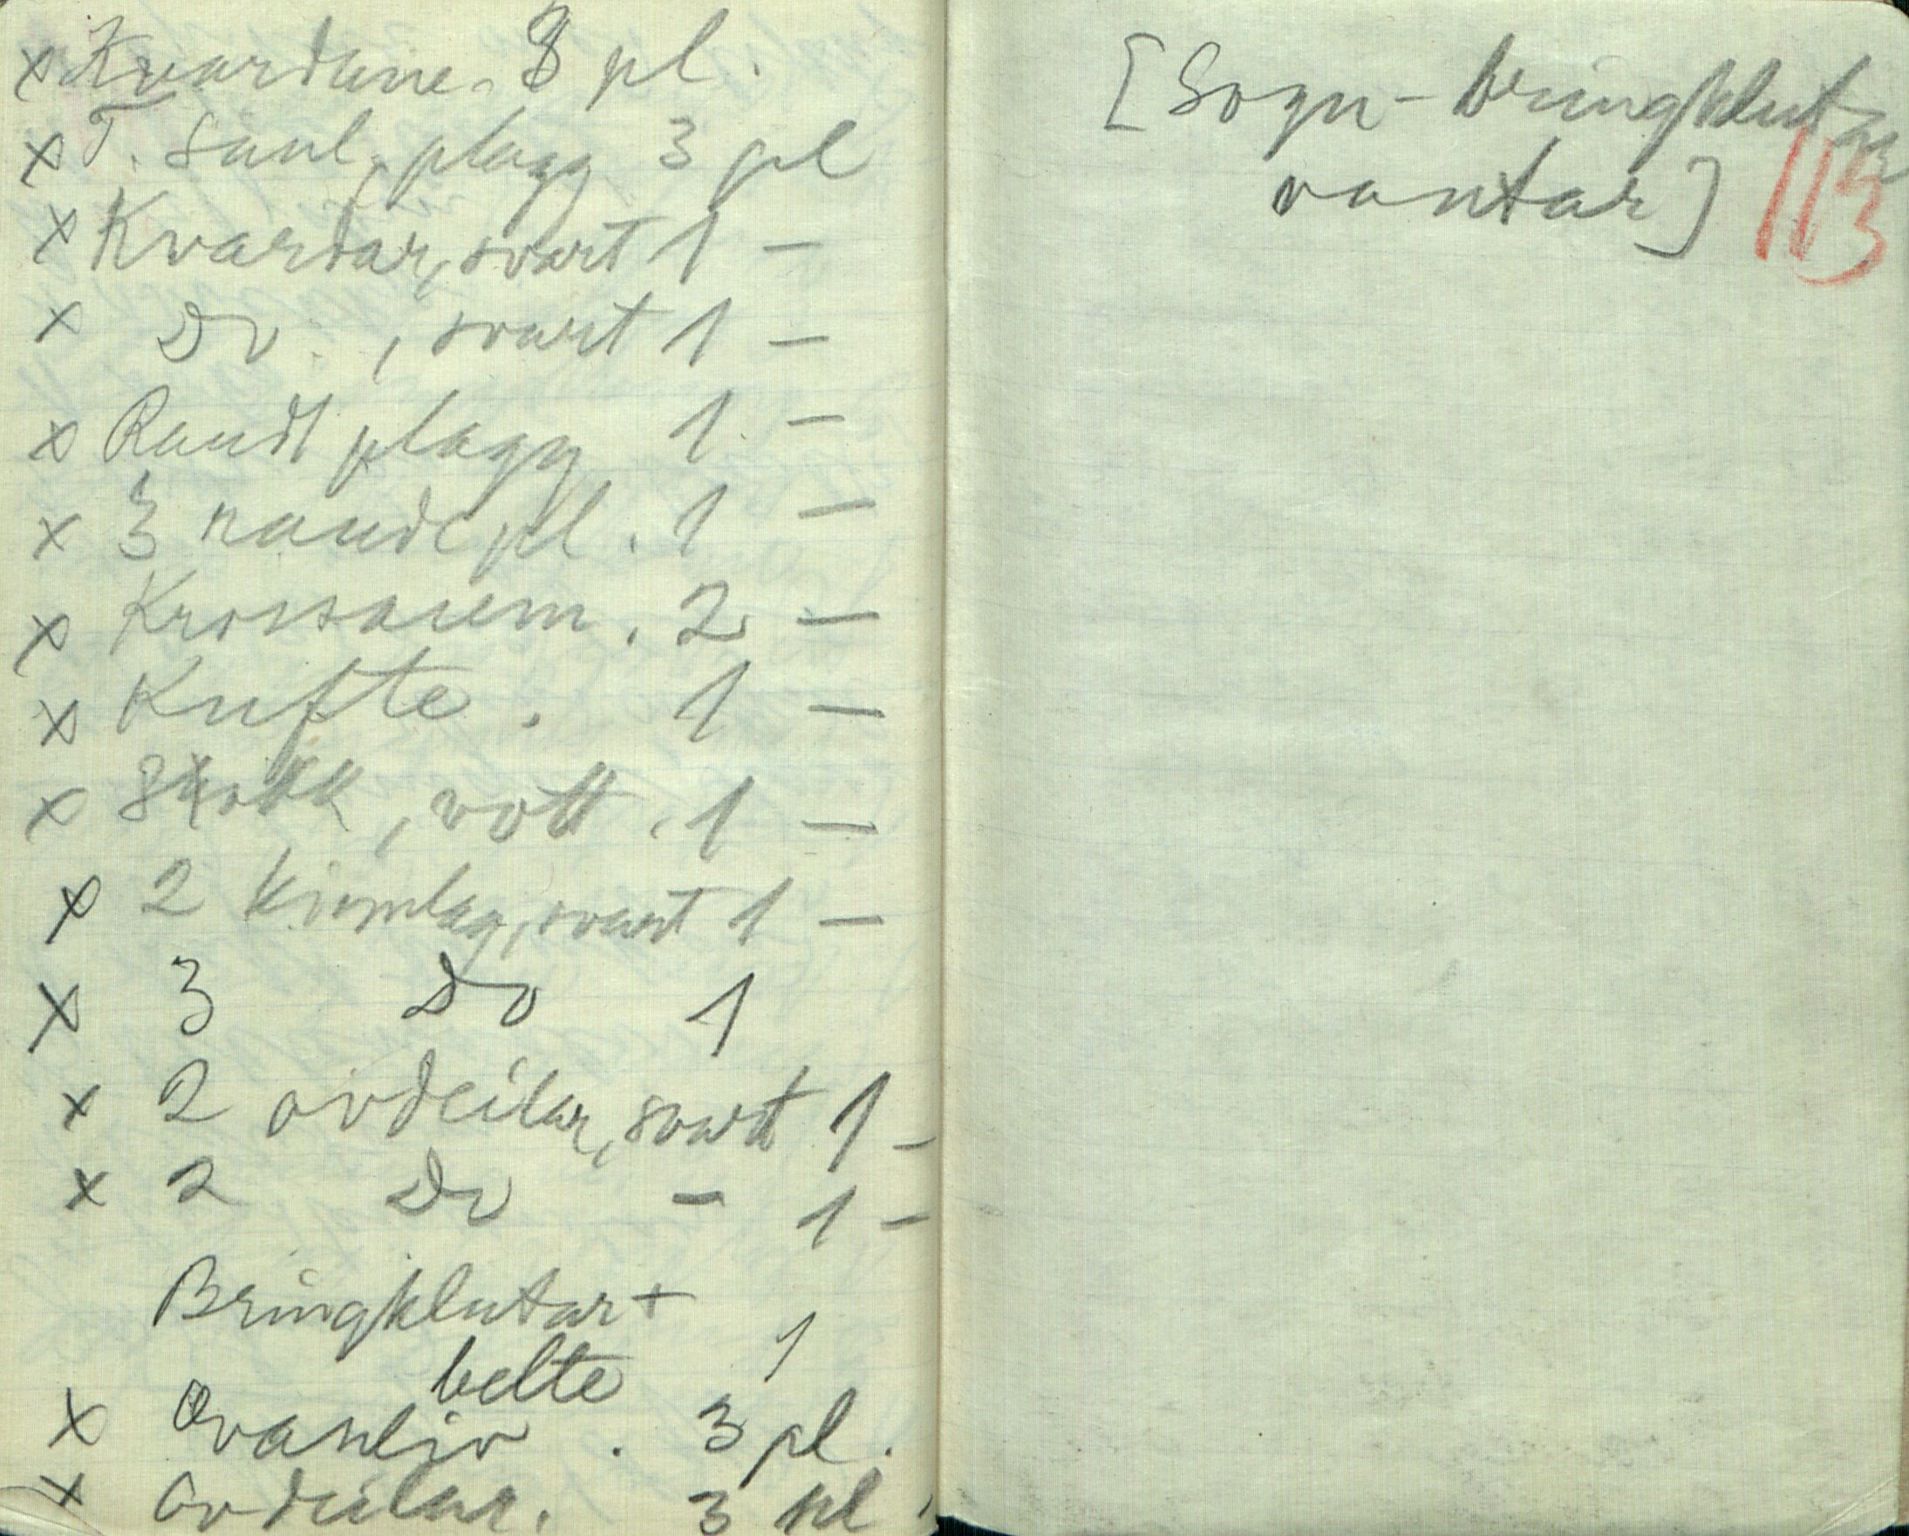 x Kvardane. 8 pl.
x T. saul. plagg 3 pl
x Kvardar, svart 1 –
x Do. , svart 1 –
x Raudt plagg 1 –
x 3 raude pl. 1 –
x Krossaum. 2 –
x Kufte. 1 –
x Skokk, vott. 1 –
x 2 kvmlag, svart 1 –
x 3 Do 1
x 2 ovdeilar, svart 1 –
x 2 Do – 1 –
Bringklutar +
belte 1
x Ovanliv. 3 pl.
x Ovdeilar. 3 pl
[Sogn- bringklutar
vantar] 113